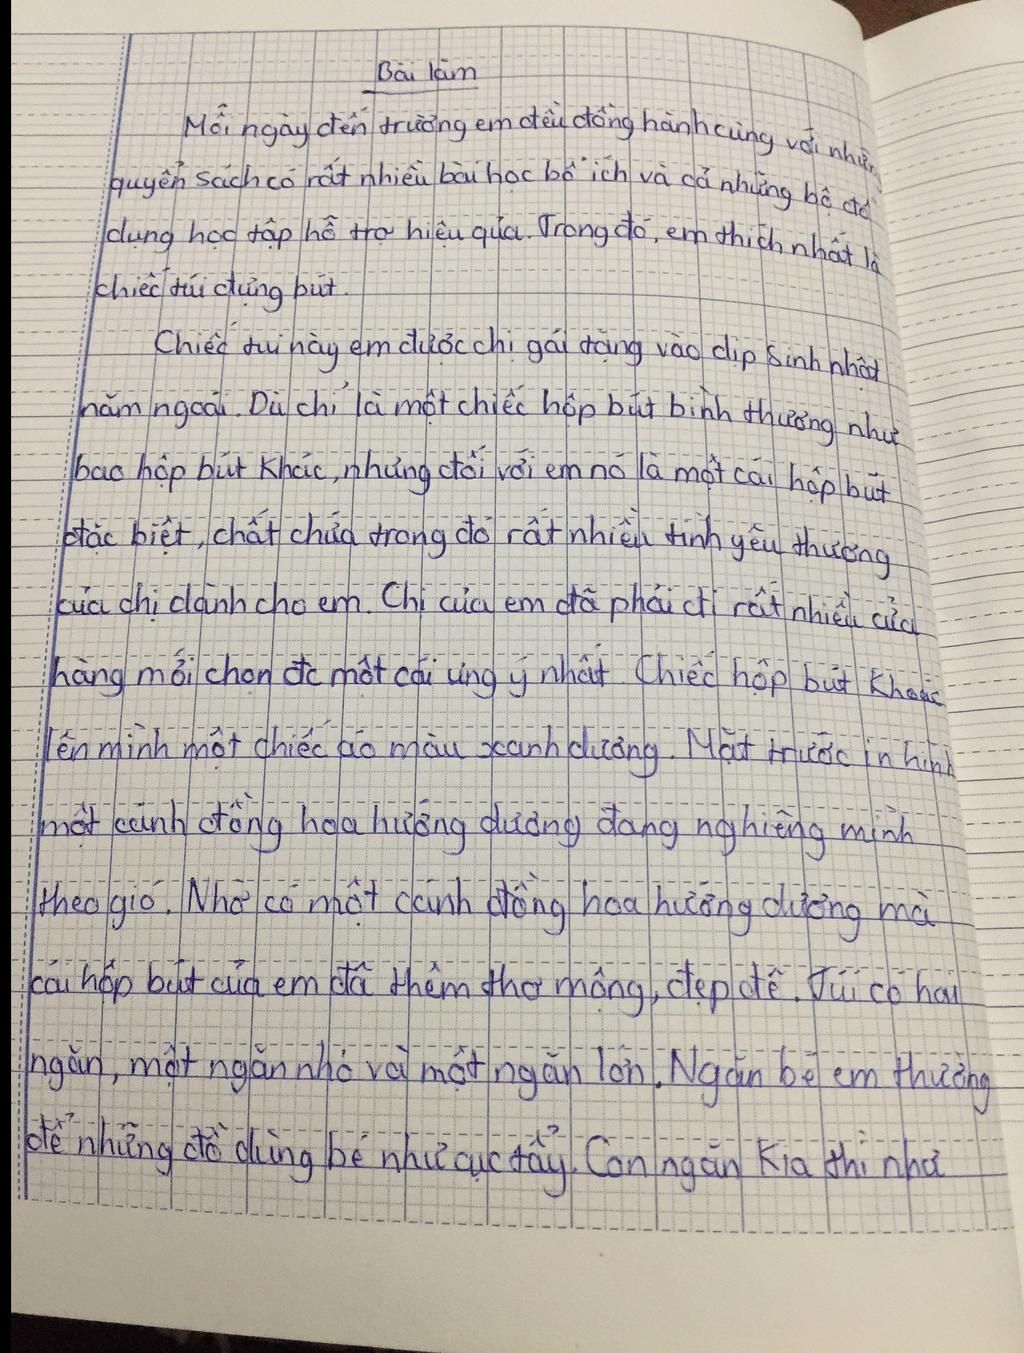 Bài làm
Mỗi ngày đến trường em đều đồng hành cùng với nhiều
quyển sách có rất nhiều bài học bổ ích và cả những bộ đồ
dụng học tập hỗ trợ hiệu qủa. Trong đó, em thích nhất là
chiếc túi đựng bút.
Chiếc túi này em được chị gái tặng vào dịp sinh nhật
năm ngoái. Dù chỉ là một chiếc hộp bút bình thương như
bao hộp bút khác, nhưng đối với em nó là một cái hộp bút
đặc biệt, chất chứa trong đó rất nhiều tình yêu thương
của chị dành cho em. Chị của em đã phải đi rất nhiều cửa
hàng mới chọn đc một cái ưng ý nhất. Chiếc hộp bút khoác
lên mình một chiếc áo màu xanh dương. Mặt trước in hình
một cánh đồng hoa hướng dương đang nghiêng mình
theo gió. Nhờ có một cánh đồng hoa hướng dương mà
cái hộp bút của em đã thêm thơ mộng, đẹp đẽ. Túi có hai
ngăn, một ngăn nhỏ và một ngăn lớn. Ngăn bé em thường
để những đồ dùng bé như cục tẩy. Còn ngăn kia thì như